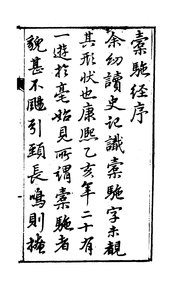 橐駞经序
余幼讀史记識橐駞字未覩
其形状也康熙乙亥年二十有
一遊於亳始見所謂橐駞者
貌甚不颺引頸長鳴则掩